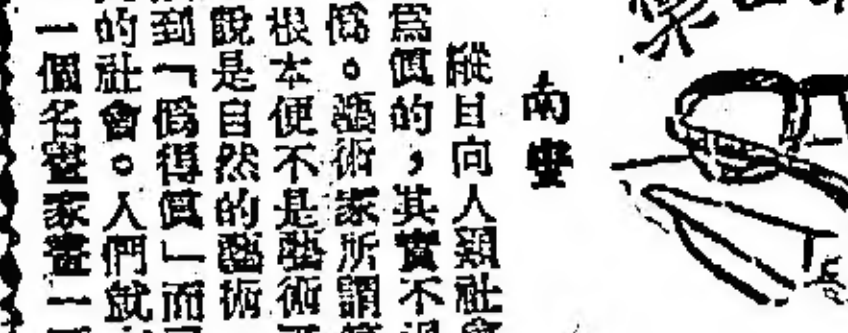 南
縱目向人類社會
爲價的，其實不過
僞。藝術家所謂
根本便不是藝術
說是自然的藝術
到「僞得價」而
的社會。人們就
一個名畫家畫一